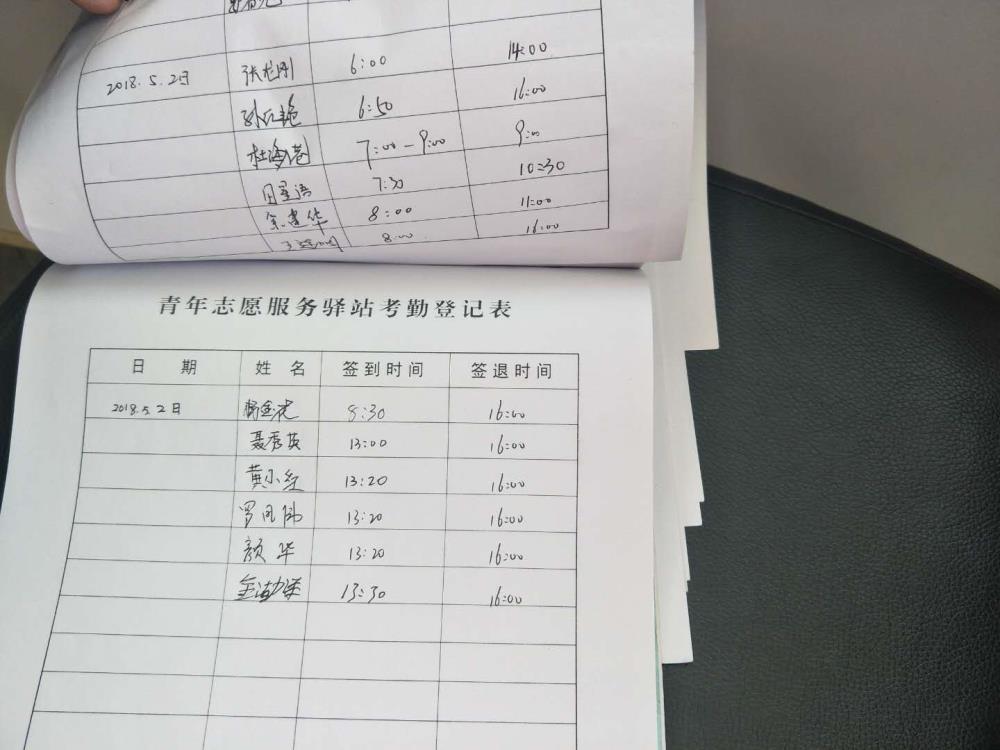 2018.5.2日 张龙刚 6:00 14:00
孙红艳 6:50 16:00
杜海港 7:00-9:00 9:00
周星语 7:30 10:30
余建华 8:00 11:00
8:00 16:00
青年志愿服务驿站考勤登记表
日 期 姓 名 签到时间 签退时间
2018.5.2日 杨金虎 8:30 16:00
聂秀英 13:00 16:00
黄小红 13:20 16:00
罗凤 13:20 16:00
颜华 13:20 16:00
13:30 16:00